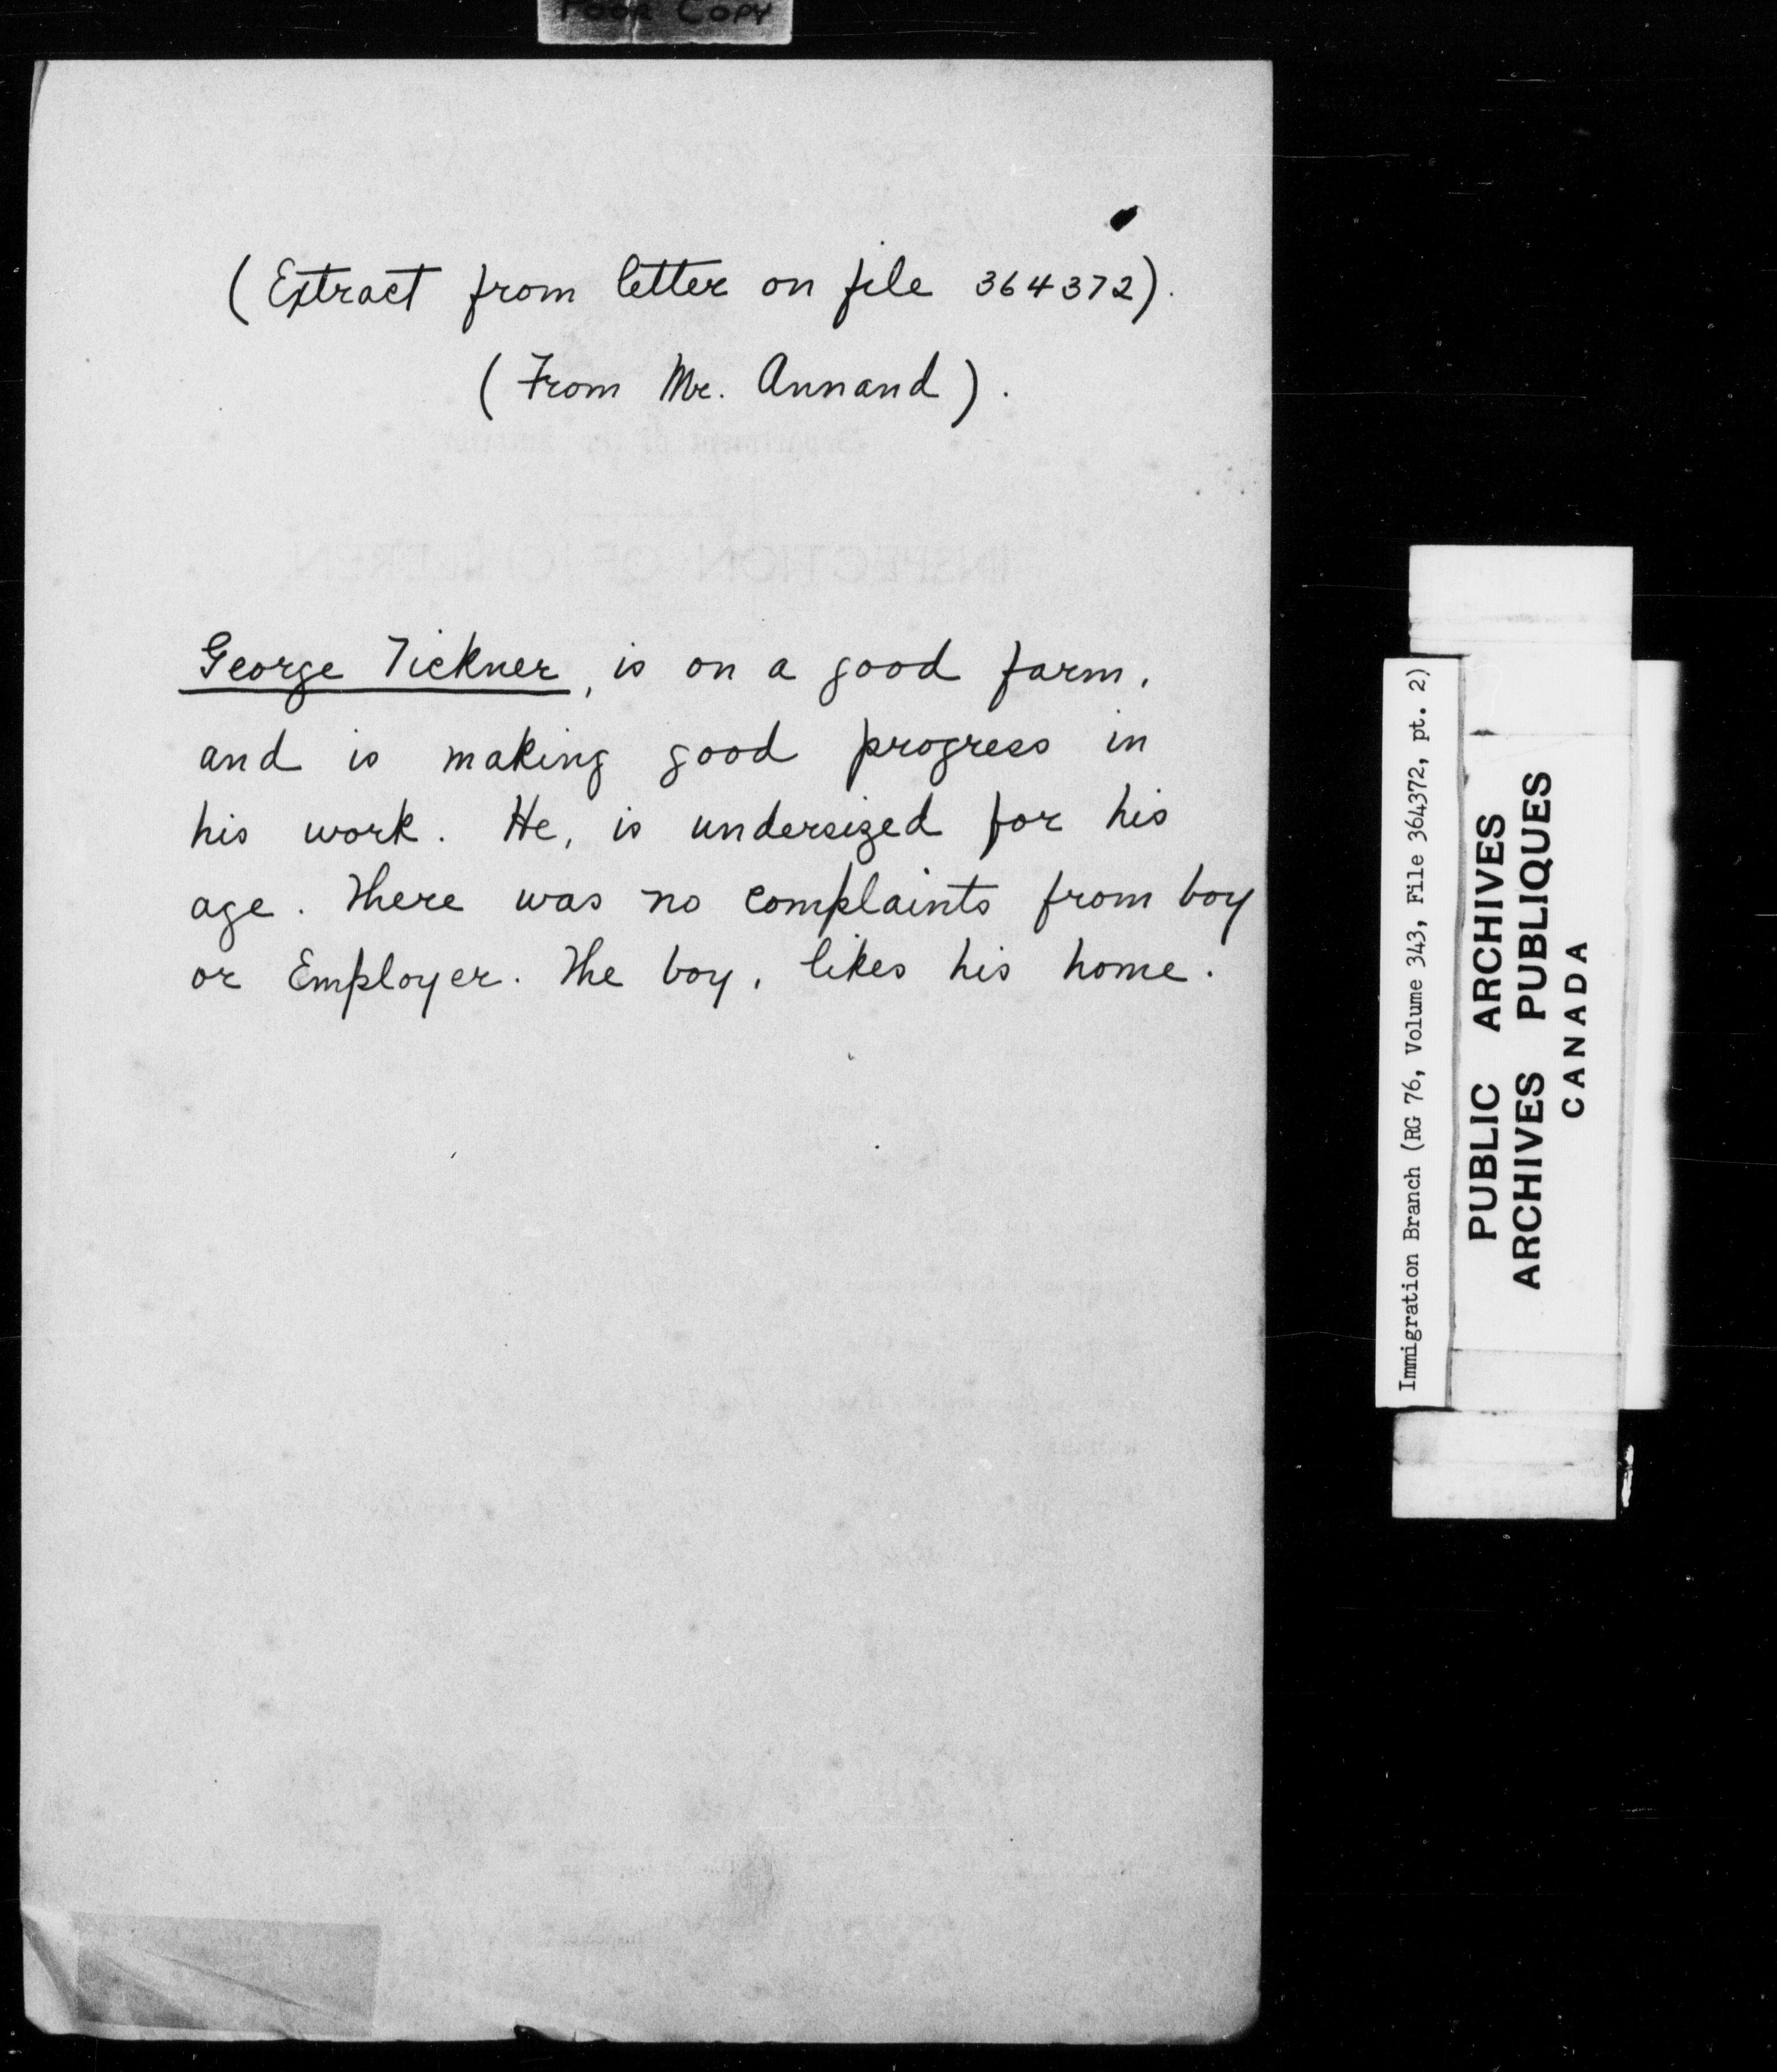 POOR COPY
(Extract from letter on file 364372).
(From Mr. Annand).
INSPECTION OF CHILDREN
George Tickner, is on a good farm,
and is making good progress in
his work. He, is undersized for his
age. There was no complaints from boy
or Employer. The boy, likes his home.
Immigration Branch (RG 76, Volume 343, File 364372, pt. 2)
PUBLIC ARCHIVES
ARCHIVES PUBLIQUES
CANADA